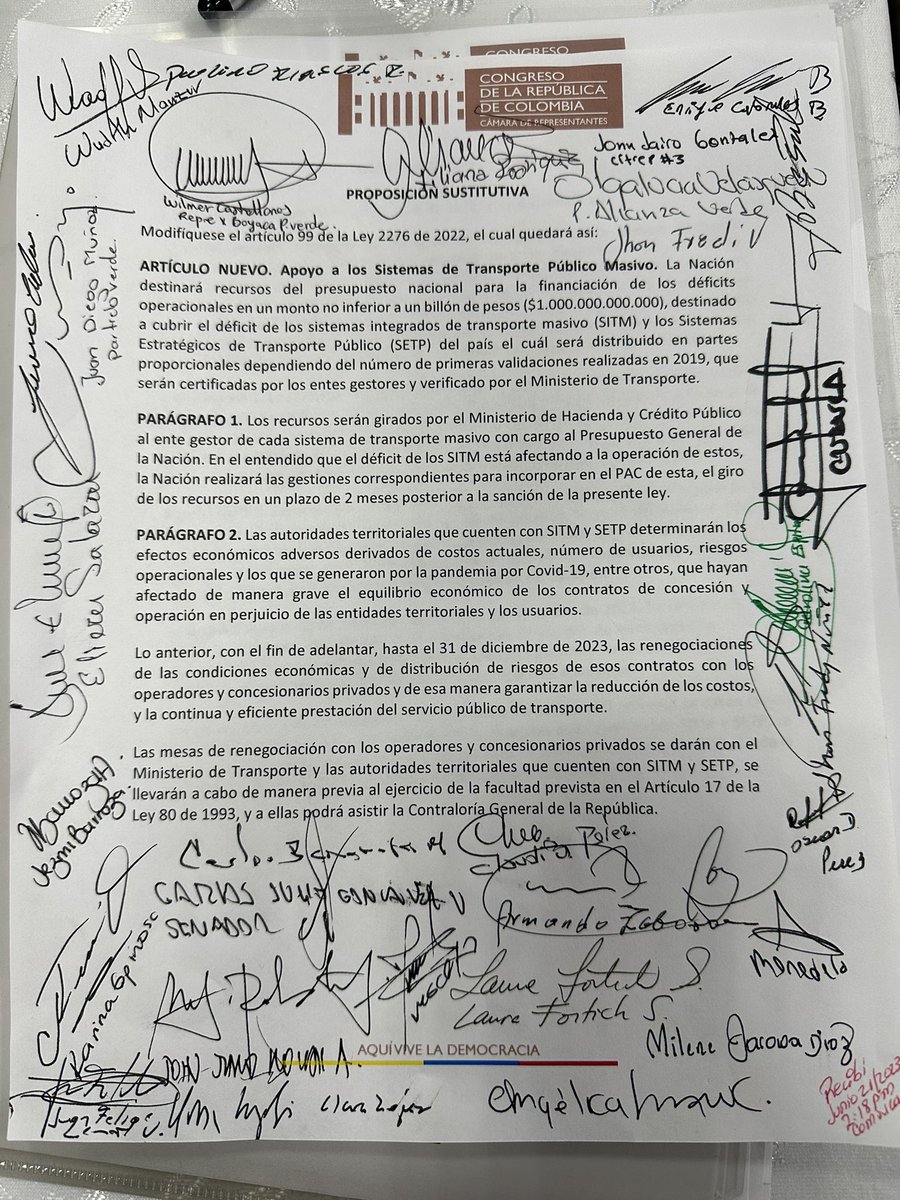 CONGRESO
CONGRESO
DE LA REPÚBLICA
DE COLOMBIA
CÁMARA DE REPRESENTANTES
Wadith Manzur
Jhon Jairo González
citrep #3
PROPOSICIÓN SUSTITUTIVA
Wilmer Castellanos
Repre x Boyaca P. verde.
Olga Lucia Velasquez
P. Alianza Verde
Jhon Fredi V
Modifíquese el artículo 99 de la Ley 2276 de 2022, el cual quedará así:
Juan Diego Muñoz
Partido verde.
ARTÍCULO NUEVO. Apoyo a los Sistemas de Transporte Público Masivo. La Nación
destinará recursos del presupuesto nacional para la financiación de los déficits
operacionales en un monto no inferior a un billón de pesos ($1.000.000.000.000), destinado
a cubrir el déficit de los sistemas integrados de transporte masivo (SITM) y los Sistemas
Estratégicos de Transporte Público (SETP) del país el cuál será distribuido en partes
proporcionales dependiendo del número de primeras validaciones realizadas en 2019, que
serán certificadas por los entes gestores y verificado por el Ministerio de Transporte.
PARÁGRAFO 1. Los recursos serán girados por el Ministerio de Hacienda y Crédito Público
al ente gestor de cada sistema de transporte masivo con cargo al Presupuesto General de
la Nación. En el entendido que el déficit de los SITM está afectando a la operación de estos,
la Nación realizará las gestiones correspondientes para incorporar en el PAC de esta, el giro
de los recursos en un plazo de 2 meses posterior a la sanción de la presente ley.
Eliecer Salazar
PARÁGRAFO 2. Las autoridades territoriales que cuenten con SITM y SETP determinarán los
efectos económicos adversos derivados de costos actuales, número de usuarios, riesgos
operacionales y los que se generaron por la pandemia por Covid-19, entre otros, que hayan
afectado de manera grave el equilibrio económico de los contratos de concesión y
operación en perjuicio de las entidades territoriales y los usuarios.
Lo anterior, con el fin de adelantar, hasta el 31 de diciembre de 2023, las renegociaciones
de las condiciones económicas y de distribución de riesgos de esos contratos con los
operadores y concesionarios privados y de esa manera garantizar la reducción de los costos,
y la continua y eficiente prestación del servicio público de transporte.
Jhon Fredy Núñez
Las mesas de renegociación con los operadores y concesionarios privados se darán con el
Ministerio de Transporte y las autoridades territoriales que cuenten con SITM y SETP, se
llevarán a cabo de manera previa al ejercicio de la facultad prevista en el Artículo 17 de la
Ley 80 de 1993, y a ellas podrá asistir la Contraloría General de la República.
Yezmi Barraza
Claudia Pérez.
CARLOS JULIO GONZALEZ V
SENADOR
Armando Zabarain
Karina Espinosa
Laura Fortich S.
Laura Fortich S.
AQUÍ VIVE LA DEMOCRACIA
Clara López
Recibi
Junio 21/2023